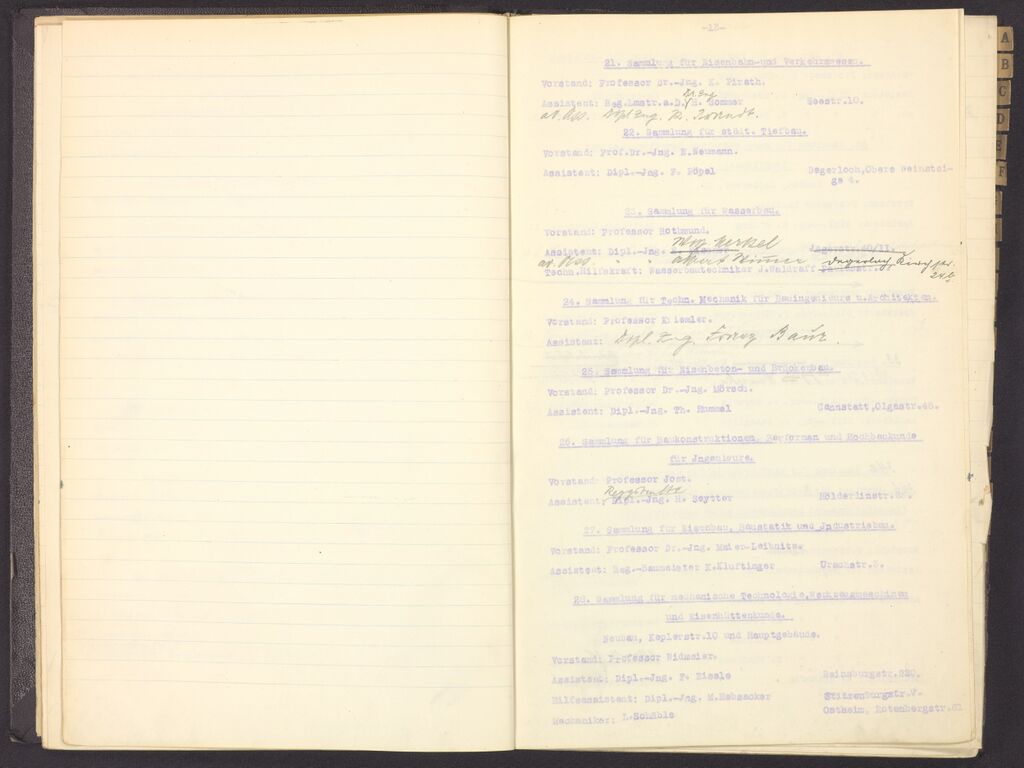 -18-
21. Sammlung für Eisenbahn-und Verkehrswesen.
Vorstand: Professor Dr.-Jng. K. Pirath.
Dr. Ing
Assistent: Reg.Bmstr.a.D. H. Sommer Seestr.10.
Dipl. Ing.
22. Sammlung für städt. Tiefbau.
Vorstand: Prof.Dr.-Jng. E.Neumann.
Assistent: Dipl.-Jng. F. Pöpel Degerloch,Obere Weinstei-
ge 4.
23. Sammlung für Wasserbau.
Vorstand: Professor Rothmund.
Merkel
Assistent: Dipl.-Jng. Jägerstr.40/II.
" " Albert Degerloch,
Techn.Hilfskraft: Wasserbautechniker J.Waldraff Paulusstr.
24. Sammlung für Techn. Mechanik für Bauingenieure u.Architekten.
Vorstand: Professor Kriemler.
Assistent: Dipl. Ing. Franz Baur
25. Sammlung für Eisenbeton- und Brückenbau.
Vorstand: Professor Dr.-Jng. Mörsch.
Assistent: Dipl.-Jng. Th. Hummel Cannstatt,Olgastr.48.
26. Sammlung für Baukonstruktionen, Zierformen und Hochbaukunde
für Jngenieure.
Vorstand: Professor Jost.
Assistent: Dipl.-Jng. H. Seytter Hölderlinstr.38.
27. Sammlung für Eisenbau, Baustatik und Jndustriebau.
Vorstand: Professor Dr.-Jng. Maier-Leibnitz.
Assistent: Reg.-Baumeister K.Kluftinger Urachstr.
28. Sammlung für mechanische Technologie,Werkzeugmaschinen
und Eisenhüttenkunde.
Neubau, Keplerstr.10 und Hauptgebäude.
Vorstand: Professor Widmaier.
Assistent: Dipl.-Jng. F. Eisele Reinsburgstr.220.
Hilfsassistent: Dipl.-Jng. M.Habsacker
Mechaniker: L.Schäble Ostheim, Rotenbergstr.61
A
B
C
D
E
F